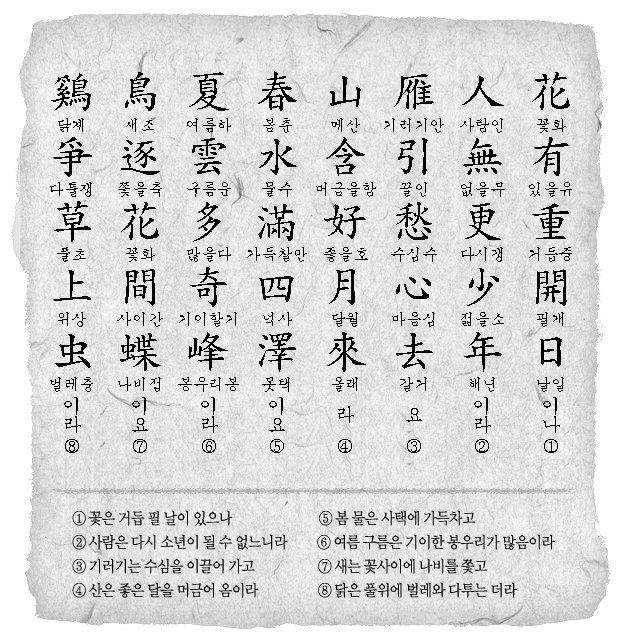 花 꽃화 有 있을유 重 거듭중 開 필개 日 날일 이나 ①
人 사람인 無 없을무 更 다시갱 少 젊을소 年 해년 이라 ②
雁 기러기안 引 끌인 愁 수심수 心 마음심 去 갈거 요 ③
山 메산 含 머금을함 好 좋을호 月 달월 來 올래 라 ④
春 봄춘 水 물수 滿 가득찰만 四 넉사 澤 못택 이요 ⑤
夏 여름하 雲 구름운 多 많을다 奇 기이할기 峰 봉우리봉 이라 ⑥
鳥 새조 逐 쫓을축 花 꽃화 間 사이간 蝶 나비접 이요 ⑦
鷄 닭계 爭 다툴쟁 草 풀초 上 위상 虫 벌레충 이라 ⑧
① 꽃은 거듭 필 날이 있으나
② 사람은 다시 소년이 될 수 없느니라
③ 기러기는 수심을 이끌어 가고
④ 산은 좋은 달을 머금어 옴이라
⑤ 봄 물은 사택에 가득차고
⑥ 여름 구름은 기이한 봉우리가 많음이라
⑦ 새는 꽃사이에 나비를 쫓고
⑧ 닭은 풀위에 벌레와 다투는 더라